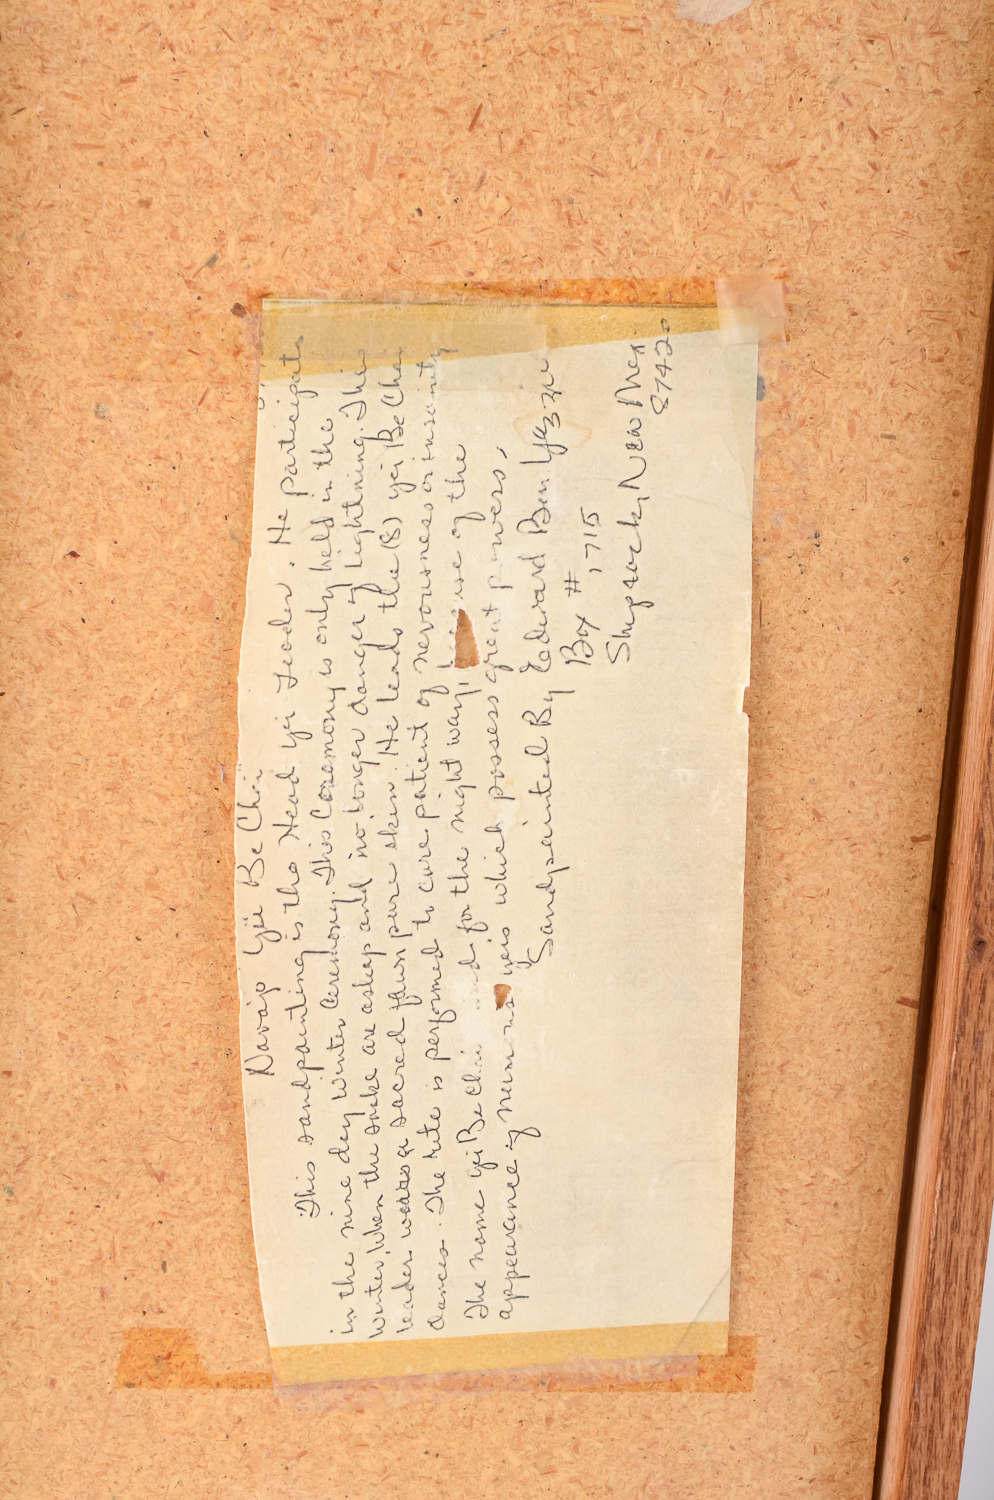 Navajo Yei Be Chai
This sandpainting is the Head yei Leader. He participate
in the nine day Winter Ceremony. This Ceremony is only held in the
Winter, When the snake are asleep and no longer danger of lightning. This
leader wears a sacred fawn pure skin. He leads the (8) yei Be Chai
dances. The rite is performed to cure patient of nervousness or insanity
The name yei Be Chai for the night way, of the
appearance of yeis which possess great powers,
Sandpainted By Edward Ben Yazzie
Box #, 715
Shiprock, New Mex.
87420